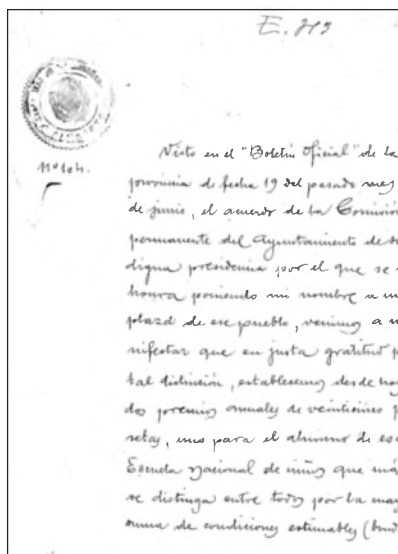 E. 
Visto en el "Boletín Oficial" de la
provincia de fecha 19 del pasado mes
de junio, el acuerdo de la Comisión
permanente del Ayuntamiento de su
digna presidencia por el que se
honra poniendo mi nombre a un
plaza de ese pueblo, venimos a m
nifestar que en justa gratitud p
tal distinción, establecemos desde hoy
dos premios anuales de veinticinco p
setas, uno para el alumno de es
Escuela Nacional de niños que más
se distinga entre todos por la may
suma de condiciones estimables (bon